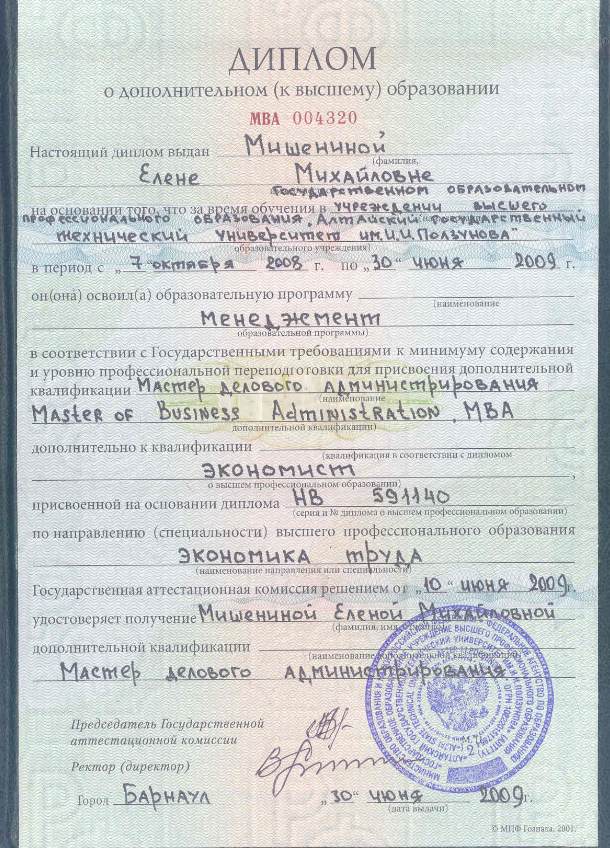 ДИПЛОМ
о дополнительном (к высшему) образовании
МВА 004320
Настоящий диплом выдан Мишениной
(фамилия,
Елене Михайловне
Государственном образовательном
на основании того, что за время обучения в учреждении высшего
профессионального образования „Алтайский государственный
технический университет им. И.И. Ползунова"
образовательного учреждения)
в период с „7" октября 2008 г. по „30" июня 2009 г.
он(она) освоил(а) образовательную программу
(наименование
Менеджмент
образовательной программы)
в соответствии с Государственными требованиями к минимуму содержания
и уровню профессиональной переподготовки для присвоения дополнительной
квалификации Мастер делового администрирования
наименование
Master of Business Administration, MBA
дополнительной квалификации)
дополнительно к квалификации
(квалификация в соответствии с дипломом
экономист
о высшем профессиональном образовании)
присвоенной на основании диплома НВ 591140
(серия и № диплома о высшем профессиональном образовании)
по направлению (специальности) высшего профессионального образования
экономика труда
(наименование направления или специальности)
Государственная аттестационная комиссия решением от „10" июня 2009г.
удостоверяет получение Мишениной Еленой Михайловной
(фамилия, имя
дополнительной квалификации
дополнительной квалификации)
Мастер делового администрирования
Председатель Государственной
аттестационной комиссии
Ректор (директор)
Город Барнаул „30" июня 2009г.
(дата выдачи)
© МПФ Гознака. 2001.